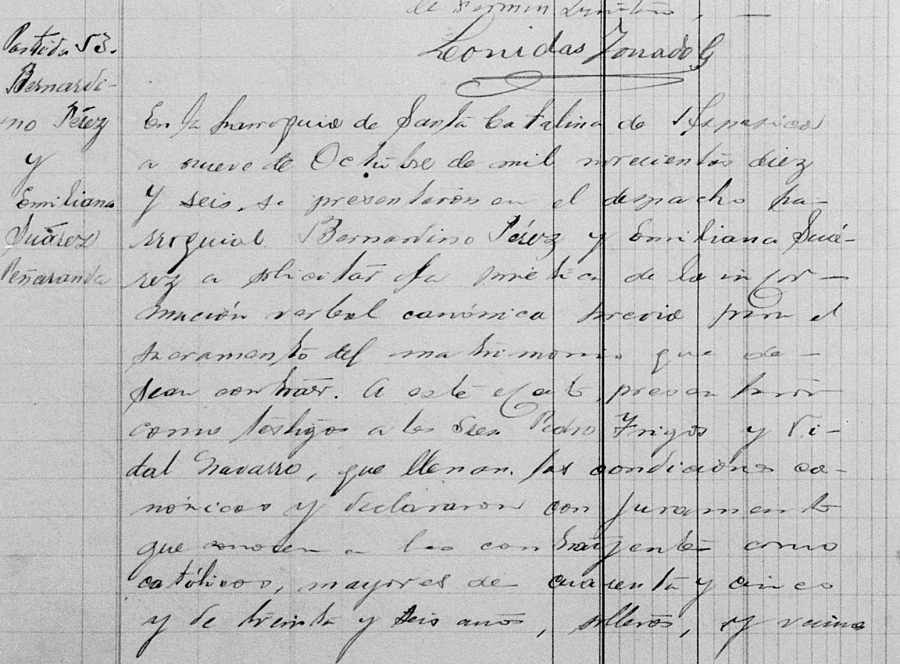 de Fermin
Leonidas
Partida 53.
Bernardi-
no Pérez
y
Emiliana
Suárez
Peñaranda
En la parroquia de Santa Catalina de
a nueve de Octubre de mil novecientos diez
y seis, se presentaron en el despacho pa-
rroquial Bernardino Pérez y Emiliana Suá-
rez a solicitar la práctica de la infor-
mación verbal canónica previa para el
sacramento del matrimonio que de-
sean contraer. A este efecto presentaron
como testigos a los Sres Pedro Trigos y Vi-
dal Navarro, que llenan las condiciones ca-
nónicas y declararon con juramento
que conocen a los contrayentes como
católicos, mayores de cuarenta y cinco
y de treinta y seis años, solteros, y vecinos